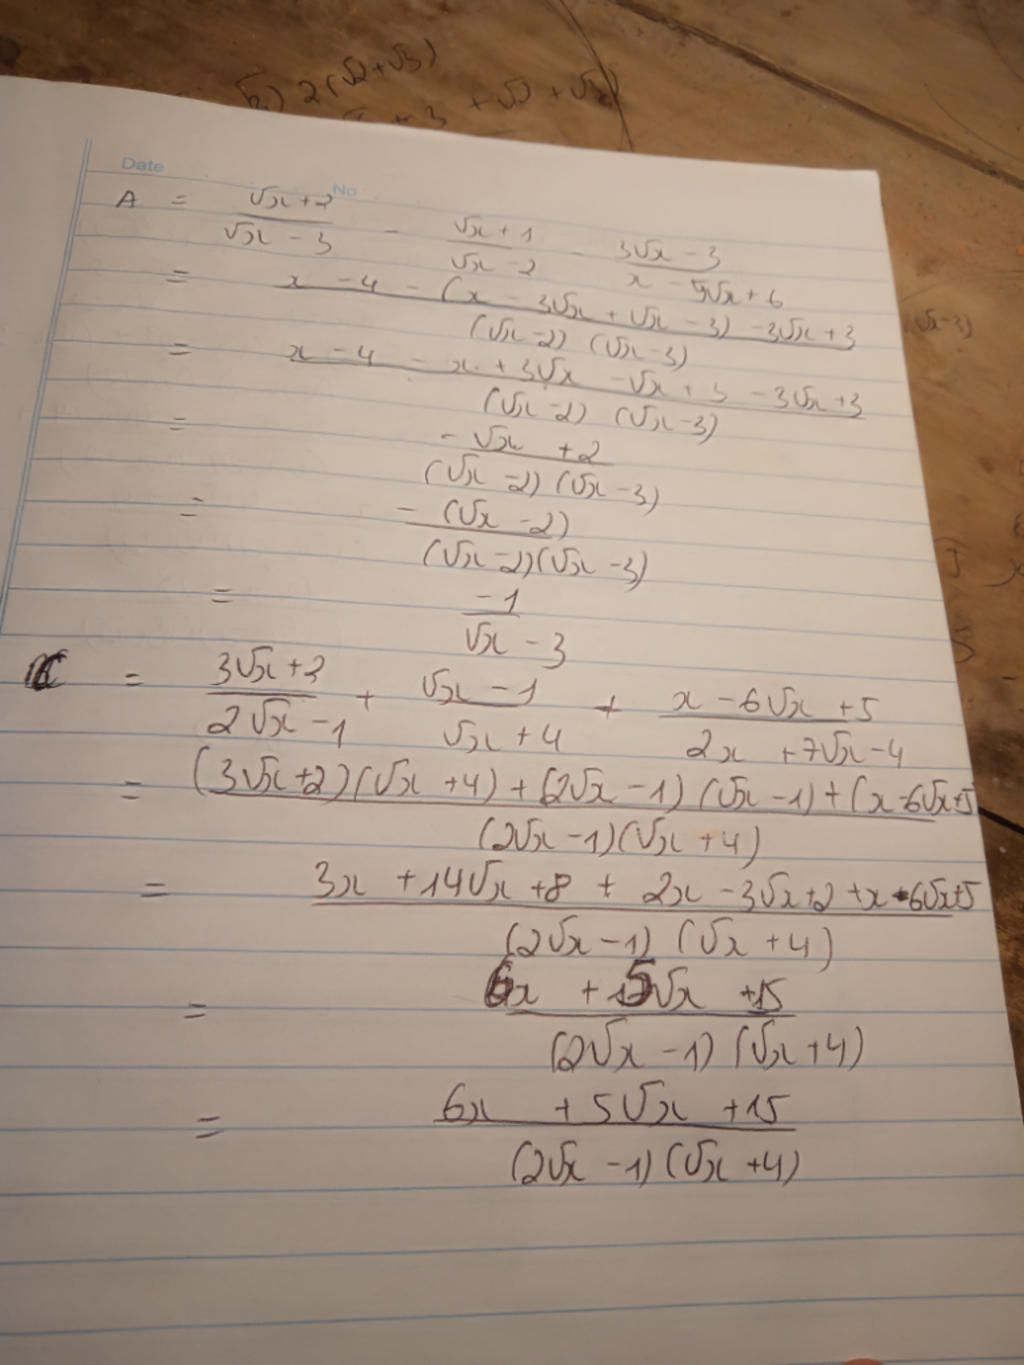 b) 2(√2+√3)
Date
No
A = (√x+2)/(√x-3) - (√x+1)/(√x-2) - (3√x-3)/(x-5√x+6)
= (x-4-(x-3√x+√x-3)-3√x+3)/((√x-2)(√x-3))
= (x-4-x+3√x-√x+3-3√x+3)/((√x-2)(√x-3))
= (-√x+2)/((√x-2)(√x-3))
= (-(√x-2))/((√x-2)(√x-3))
= (-1)/(√x-3)
C = (3√x+2)/(2√x-1) + (√x-1)/(√x+4) + (x-6√x+5)/(2x+7√x-4)
= ((3√x+2)(√x+4)+(2√x-1)(√x-1)+(x-6√x+5)/((2√x-1)(√x+4))
= (3x+14√x+8+2x-3√x+2+x-6√x+5)/((2√x-1)(√x+4))
= (6x+5√x+15)/((2√x-1)(√x+4))
= (6x+5√x+15)/((2√x-1)(√x+4))